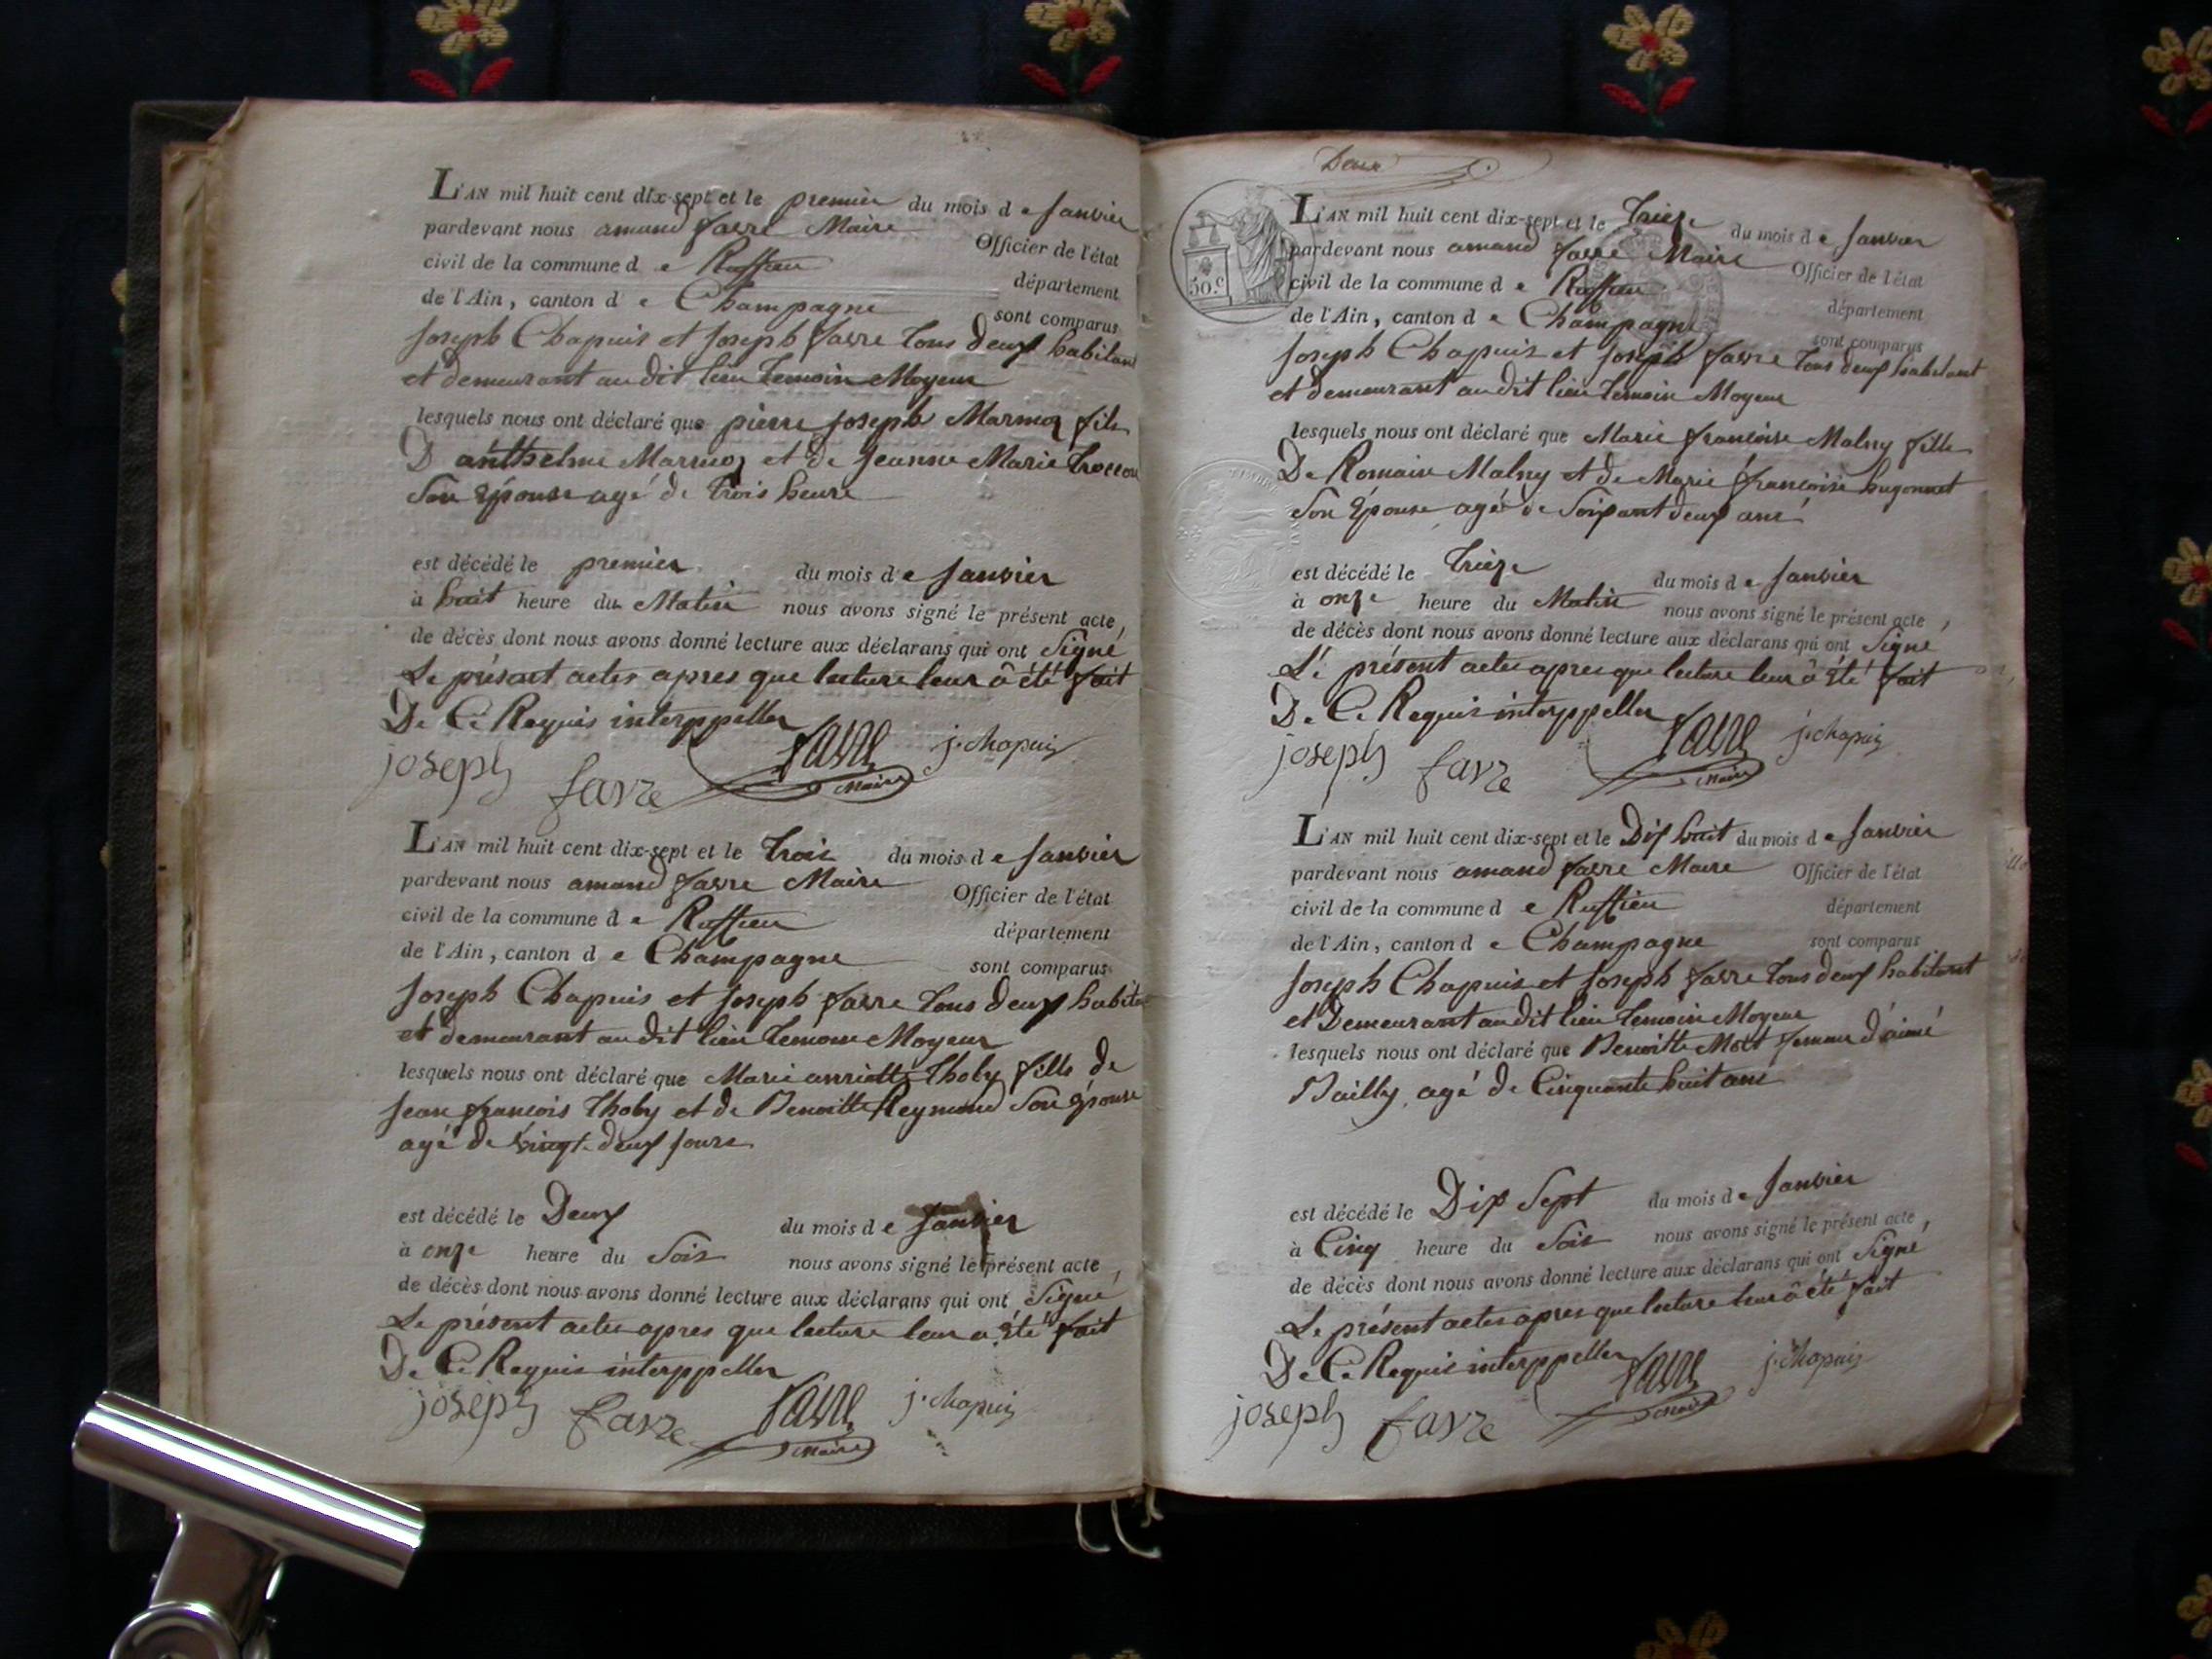 L'AN mil huit cent dix-sept et le premier du mois d e Janvier
pardevant nous amand favre Maire Officier de l'état
civil de la commune d e Ruffieu département
de l'Ain, canton d e Champagne sont comparus
Joseph Chapuis et Joseph favre tous deux habitant
et demeurant audit lieu temoin Moyeur
lesquels nous ont déclaré que pierre Joseph Marmoz fils
D anthelme Marmoz et de Jeanne Marie
Son Épouse agé de trois heure
est décédé le premier du mois d e Janvier
à huit heure du Matin nous avons signé le présent acte,
de décès dont nous avons donné lecture aux déclarans qui ont Signé
Le présent actes apres que lecture leur à été fait
De Ce Requis interppeller
joseph favre favre Maire j. chapuis
L'AN mil huit cent dix-sept et le trois du mois d e Janvier
pardevant nous amand favre Maire Officier de l'état
civil de la commune d e Ruffieu département
de l'Ain, canton d e Champagne sont comparus
Joseph Chapuis et Joseph favre tous deux
et demeurant audit lieu temoin Moyeur
lesquels nous ont déclaré que Marie anriette Thoby fille de
Jean francois Thoby et de Benoitte Reymond Son épouse
agé de vingt-deux Jours
est décédé le Deux du mois d e Janvier
à onze heure du Soir nous avons signé le présent acte,
de décès dont nous avons donné lecture aux déclarans qui ont Signé
Le présent actes apres que lecture leur a été fait
De Ce Requis interppeller
joseph favre favre Maire j. chapuis
Deux
50.c
L'AN mil huit cent dix-sept et le treize du mois d e Janvier
pardevant nous amand favre Maire Officier de l'état
civil de la commune d e Ruffieu département
de l'Ain, canton d e Champagne sont comparus
Joseph Chapuis et Joseph favre tous deux habitant
et demeurant audit lieu temoin Moyeur
lesquels nous ont déclaré que Marie francoise Malny fille
De Romain Malny et de Marie francoise hugonnet
Son Épouse agé de Soixant deux ans
est décédé le treize du mois d e Janvier
à onze heure du Matin nous avons signé le présent acte,
de décès dont nous avons donné lecture aux déclarans qui ont Signé
Le présent actes apres que lecture leur à été fait
De Ce Requis interppeller
joseph favre favre Maire j. chapuis
L'AN mil huit cent dix-sept et le Dix huit du mois d e Janvier
pardevant nous amand favre Maire Officier de l'état
civil de la commune d e Ruffieu département
de l'Ain, canton d e Champagne sont comparus
Joseph Chapuis et Joseph favre tous deux habitant
et Demeurant audit lieu temoin Moyeur
lesquels nous ont déclaré que Benoitte femme d'aimé
Bailly agé de Cinquante huit ans
est décédé le Dix Sept du mois d e Janvier
à Cinq heure du Soir nous avons signé le présent acte,
de décès dont nous avons donné lecture aux déclarans qui ont Signé
Le présent actes apres que lecture leur à été fait
De Ce Requis interppeller
joseph favre favre Maire j. chapuis